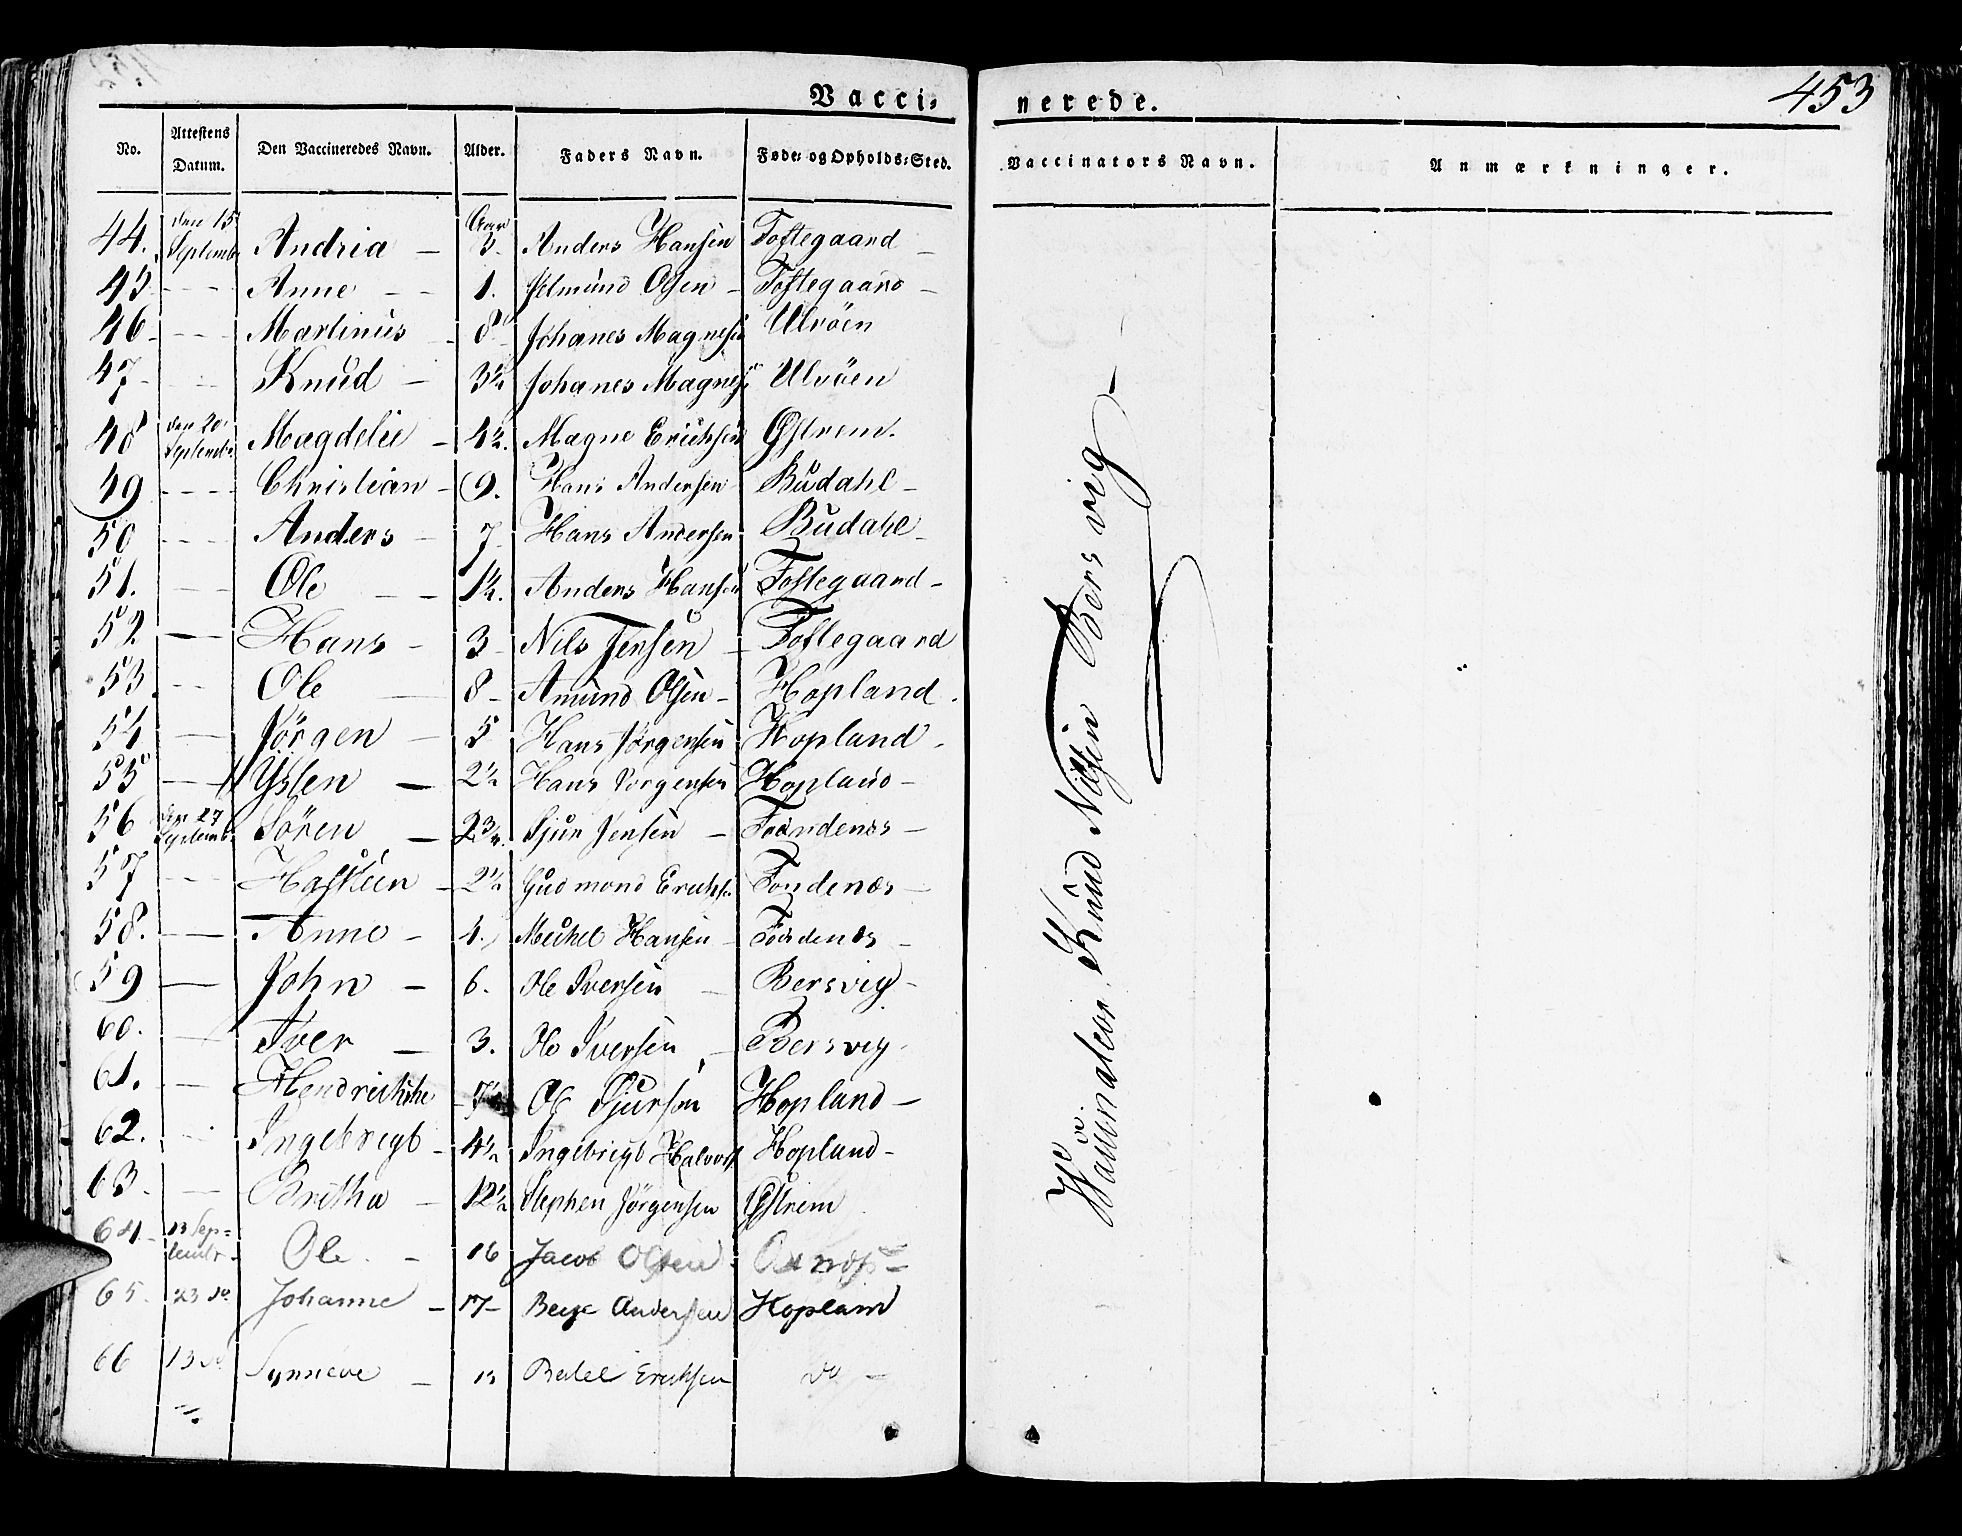 453
Vacci- nerede.
No. Attestens Datum. Den Vaccineredes Navn. Alder. Faders Navn. Føde- og Opholds-Sted. Vaccinators Navn. Anmærkninger.
44. den 15 Septembr Andria - Aar 3. Anders Hansen Toftegaard -
45 - - - Anne - - 1. Olsen - Toftegaard -
46 - - - Martinus - 8 Johanes Magnesen Ulvöen
47 - - - Knud - 3½ Johanes Magnes Ulvöen
48 den 20 Septembr Magdele - 4½. Magne Erichsen Østrem.
49 - - - Christian - 9. Hans Andersen Budahl -
50 - - - Anders - 7 - Hans Andersen Budahl -
51. - - Ole - - 1½. Anders Hansen Toftegaard -
52 - Hans - 3 - Nils Jensen - Toftegaard
53. - - Ole - 8 - Amund Olsen - Hopland.
54 - Jörgen - 5 Hans Jörgensen Hopland.
55 - - Ysten - 2½ Hans Jörgensen Hopland -
56 den 27 Septembr Sören - 2¾. Sjur Jensen - -
57 - - - - 2½ Gudmond Erichs -
58. - - Anne - 4. Michel Hansen - -
59 - John - 6. Ole Iversen - Bersvig -
60. - Iver - 3. Ole Iversen - Bersvig.
61. - Hendrickche - 7½ Ole Sjursen Hopland -
62. - Ingebregt - 4½ Ingebrigt Halvors Hopland -
63. - Britha - 12½ Stephen Jörgensen Østrem
64 - 13 Septembr - Ole. - 16 Jacob Olsen.
65. 23 do Johanne - 17 - Berge Andersen Hopland
66 13 do Synneve - 13 Bertel Erichsen do -
Knud Nilsen Bersvig